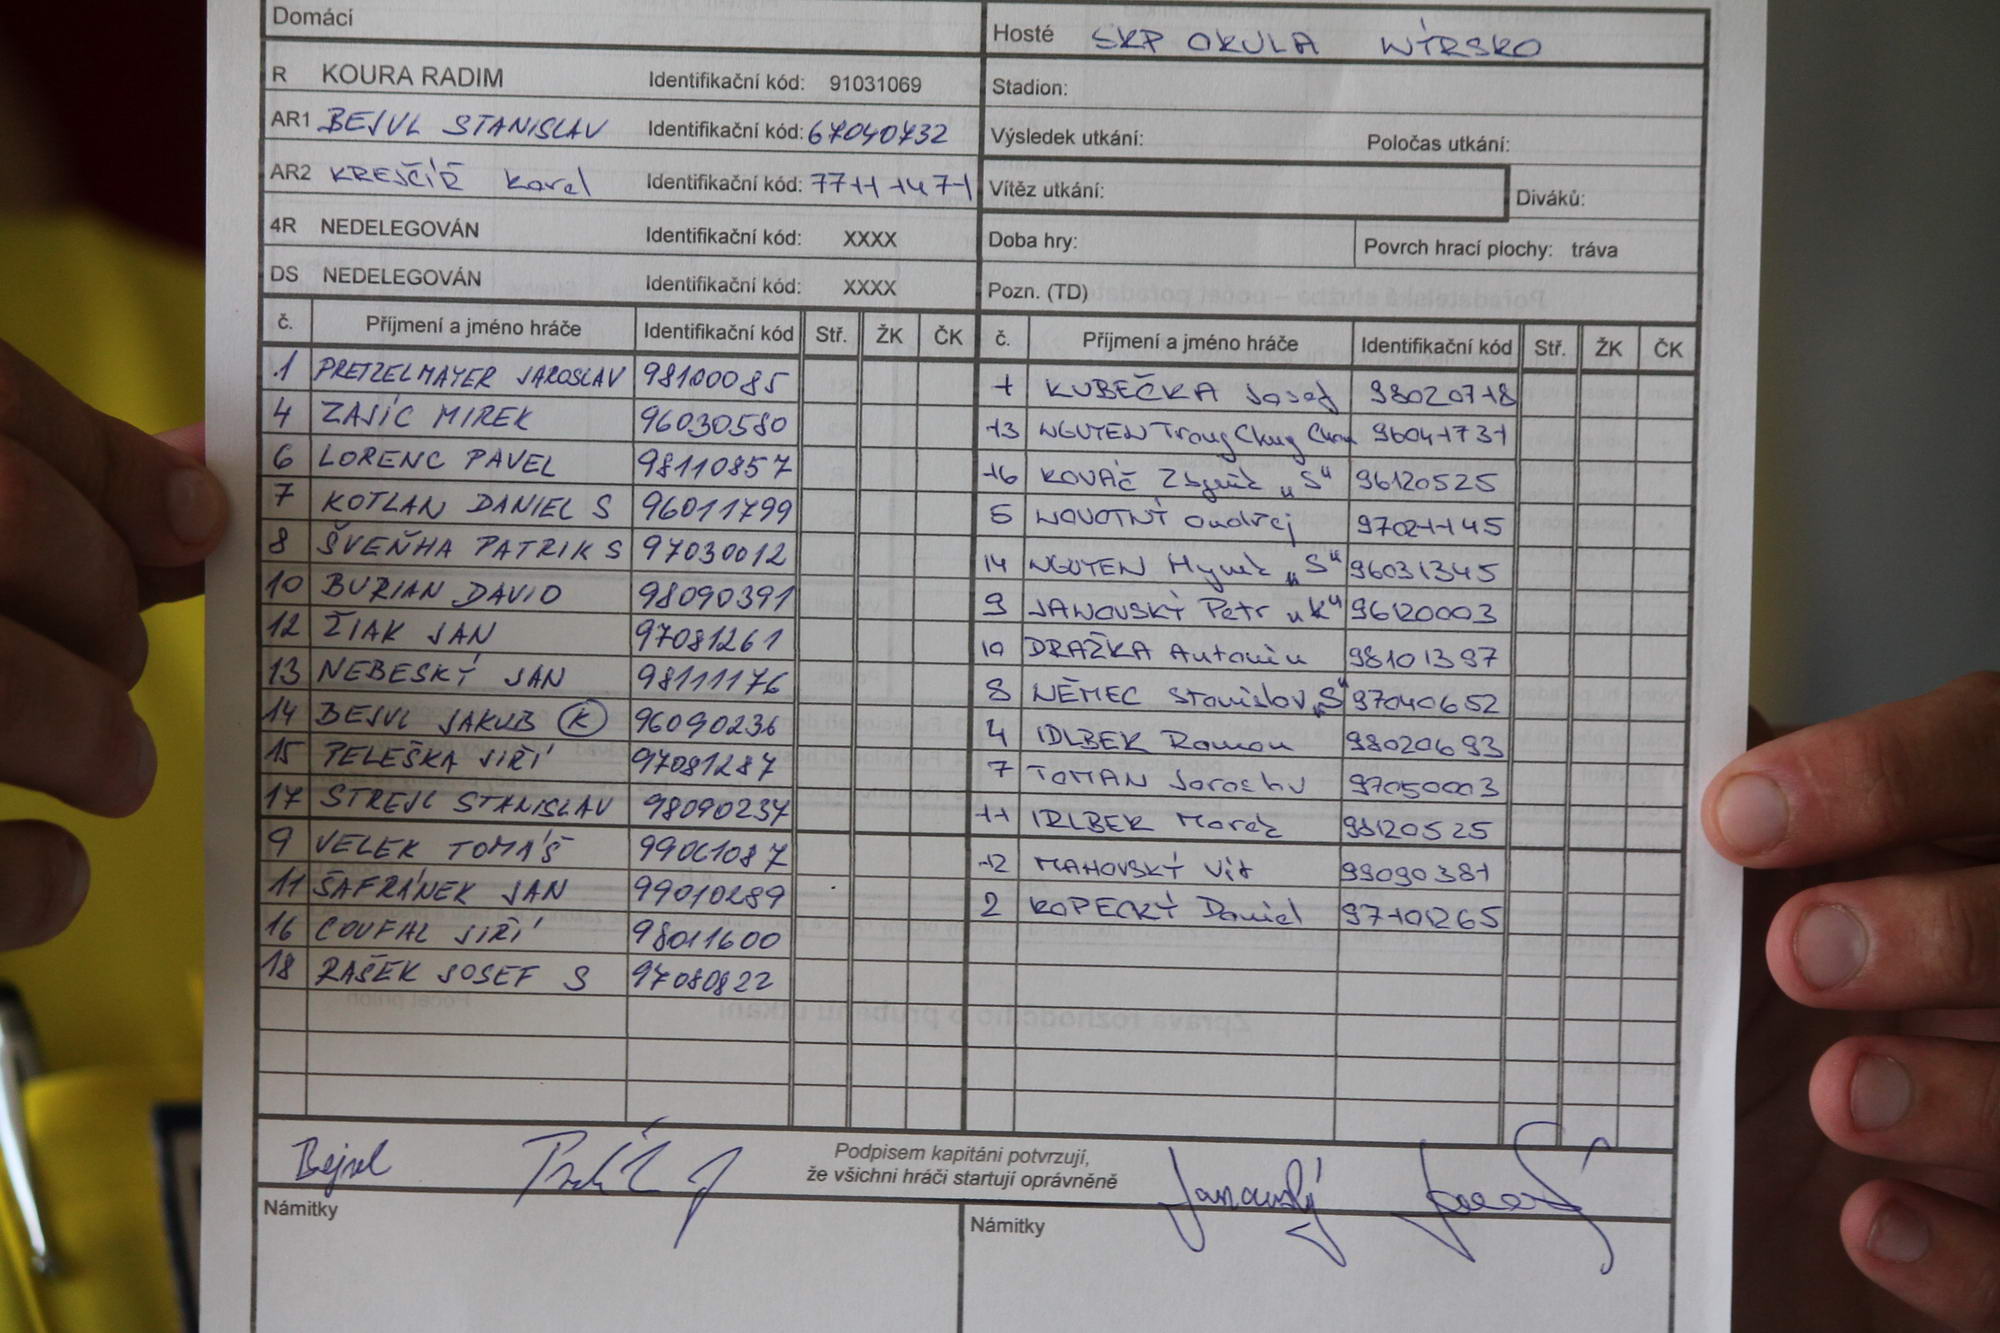 Domácí
Hosté SKP OKULA NÝRSKO
R KOURA RADIM Identifikační kód: 91031069
Stadion:
AR1 BEJVL STANISLAV Identifikační kód: 67040732
Výsledek utkání: Poločas utkání:
AR2 KREJČÍŘ Karel Identifikační kód: 77111471
Vítěz utkání: Diváků:
4R NEDELEGOVÁN Identifikační kód: XXXX
Doba hry: Povrch hrací plochy: tráva
DS NEDELEGOVÁN Identifikační kód: XXXX
Pozn. (TD)
č. Příjmení a jméno hráče Identifikační kód Stř. ŽK ČK
1 PRETZELMAYER JAROSLAV 98100085
4 ZAJÍC MIREK 96030580
6 LORENC PAVEL 98110857
7 KOTLAN DANIEL S 96011799
8 ŠVEŇHA PATRIK S 97030012
10 BURIAN DAVID 98090391
12 ŽIAK JAN 97081261
13 NEBESKÝ JAN 98111176
14 BEJVL JAKUB K 96090236
15 PELEŠKA JIŘÍ 97081287
17 STREJC STANISLAV 98090237
9 VELEK TOMÁŠ 99061087
11 ŠAFRÁNEK JAN 99010289
16 COUFAL JIŘÍ 98011600
18 RAŠEK JOSEF S 97080822
č. Příjmení a jméno hráče Identifikační kód Stř. ŽK ČK
1 KUBEČKA Josef 98020718
13 NGUYEN Trong 96041731
16 KOVÁČ Zbyněk „S“ 96120525
5 NOVOTNÝ Ondřej 97021145
14 NGUYEN Hynek „S“ 96031345
9 JANOVSKÝ Petr „K“ 96120003
10 DRAŽKA Antonín 98101397
8 NĚMEC Stanislav „S“ 97040652
4 IDLBEK Roman 98020693
7 TOMAN Jaroslav 97050003
11 IRLBEK Marek 98120525
12 MAHOVSKÝ Vít 99090381
2 KOPECKÝ Daniel 97101265
Bejvl
Podpisem kapitáni potvrzují,
že všichni hráči startují oprávněně
Janovský
Námitky
Námitky